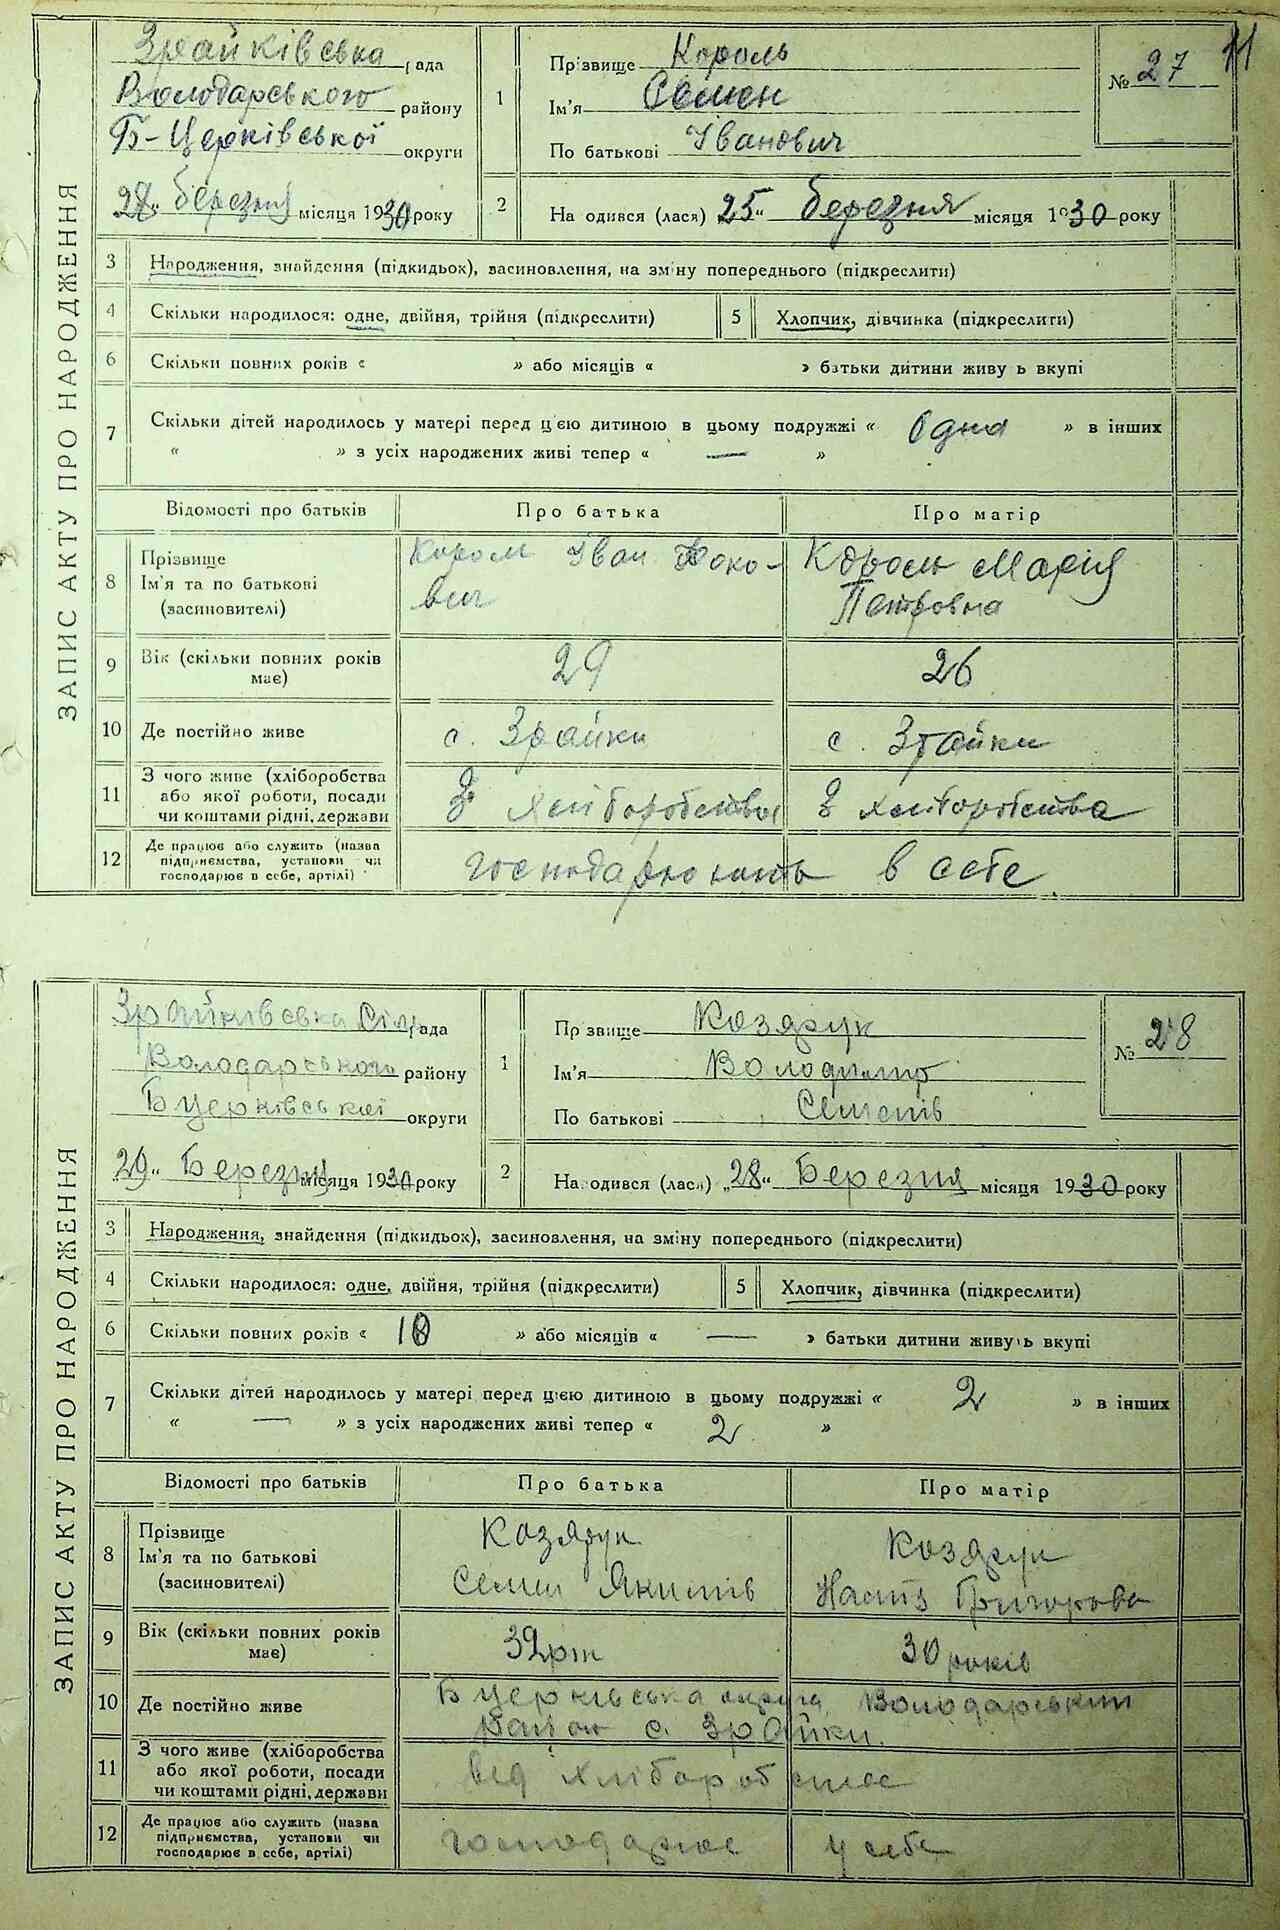 11
ЗАПИС АКТУ ПРО НАРОДЖЕННЯ
Зрайківська рада
Володарського району
Б-Церківської округи
28 березня місяця 1930 року
1
Прізвище Король
Ім'я Семен
По батькові Іванович
№ 27
2
На одився (лася) „25" березня місяця 1930 року
3 Народження, знайдення (підкидьок), васиновлення, на зміну попереднього (підкреслити)
4 Скільки народилося: одне, двійня, трійня (підкреслити)
5 Хлопчик, дівчинка (підкреслити)
6 Скільки повних років « » або місяців « » батьки дитини живу ь вкупі
7 Скільки дітей народилось у матері перед цією дитиною в цьому подружжі « Одна » в інших
« » з усіх народжених живі тепер « — »
Відомості про батьків Про батька Про матір
8 Прізвище
Ім'я та по батькові
(засиновителі)
Король Іван
вич
Король Марія
Петровна
9 Вік (скільки повних років
має)
29
26
10 Де постійно живе
с. Зрайки
с. Зрайки
11 З чого живе (хліборобства
або якої роботи, посади
чи коштами рідні, держави
З хліборобства
З хліборобства
12 Де працює або служить (назва
підприємства, установи чи
господарює в себе, артілі)
господарюють в себе
ЗАПИС АКТУ ПРО НАРОДЖЕННЯ
Зрайківська Сіль рада
Володарського району
Бцерківської округи
29 Березня місяця 1930 року
1
Пр звище Козярук
Ім'я Володимир
По батькові Семенів
№ 28
2
На одився (лася) „28" Березня місяця 1930 року
3 Народження, знайдення (підкидьок), засиновлення, на зміну попереднього (підкреслити)
4 Скільки народилося: одне, двійня, трійня (підкреслити)
5 Хлопчик, дівчинка (підкреслити)
6 Скільки повних років « 10 » або місяців « — » батьки дитини живуть вкупі
7 Скільки дітей народилось у матері перед цією дитиною в цьому подружжі « 2 » в інших
« — » з усіх народжених живі тепер « 2 »
Відомості про батьків Про батька Про матір
8 Прізвище
Ім'я та по батькові
(засиновителі)
Козярук
Семен Якимів
Козярук
Настя Григорова
9 Вік (скільки повних років
має)
32
30 років
10 Де постійно живе
Бцерківська округа Володарський
район с. Зрайки.
11 З чого живе (хліборобства
або якої роботи, посади
чи коштами рідні, держави
від хліборобства
12 Де працює або служить (назва
підприємства, установи чи
господарює в себе, артілі)
господарює у себе